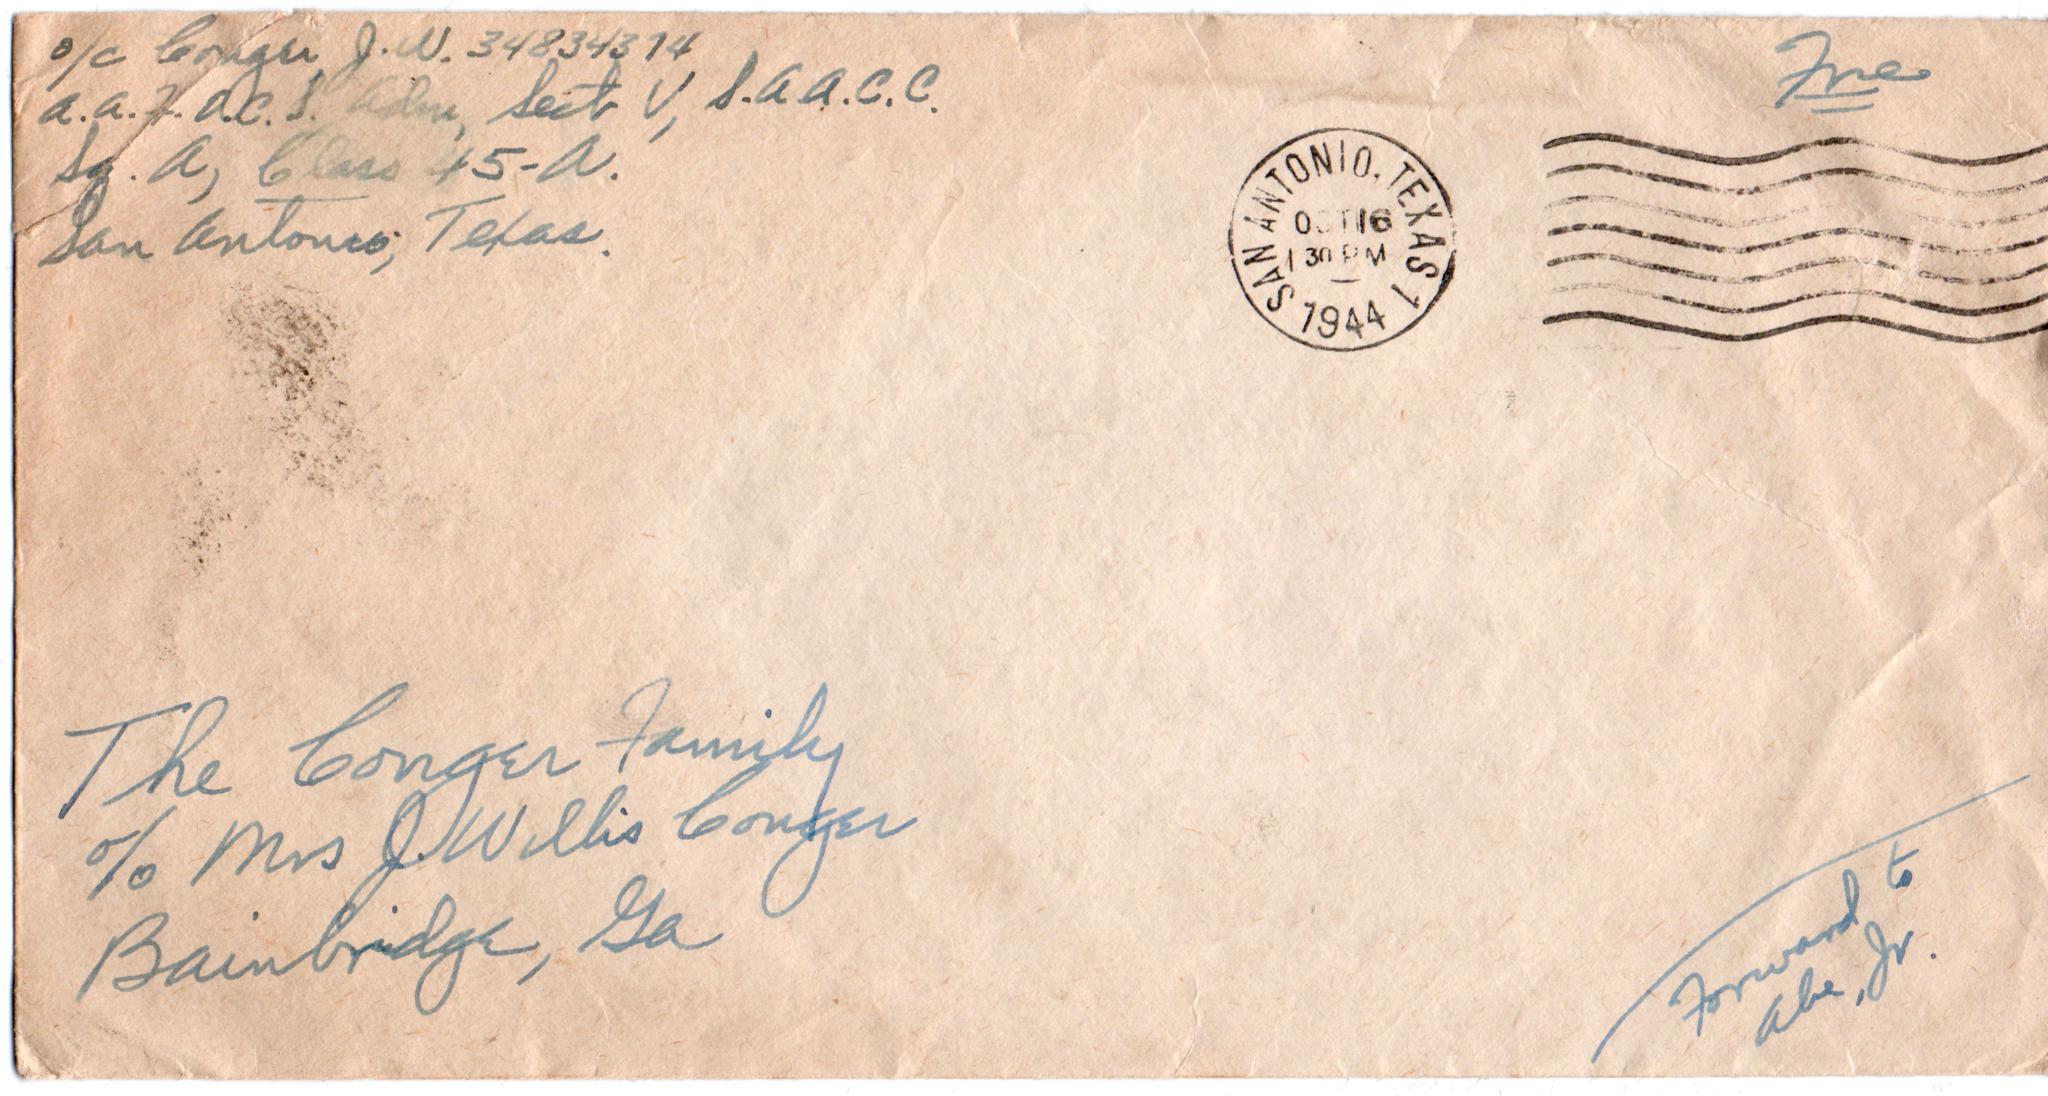 o/c Conger J.W. 34834374
A.A.F.O.C.S. Adm, Sect V, S.A.A.C.C.
Sq. A, Class 45-A.
San Antonio, Texas.
Free
SAN ANTONIO, TEXAS 1
OCT 16
1 30 PM
1944
The Conger Family
c/o Mrs J. Willis Conger
Bainbridge, Ga
Forward to
Abe, Jr.